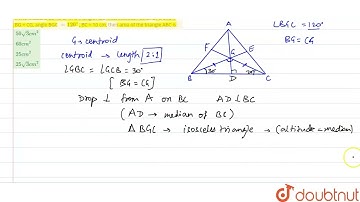 BG = CG, angle BGC = 120°, BC = 10 cm, the area of the triangle ABC is
50√3cm²
60cm²
25cm²
25√3cm²
G → centroid
centroid → length 2:1
∠GBC = ∠GCB = 30°
[BG = CG]
Drop ⊥ from A on BC AD ⊥ BC
(AD → median of BC)
Δ BGC → isosceles triangle → (altitude = median)
A
F
E
G
30°
30°
B
D
C
∠BGC = 120°
BG = CG
doubtnut